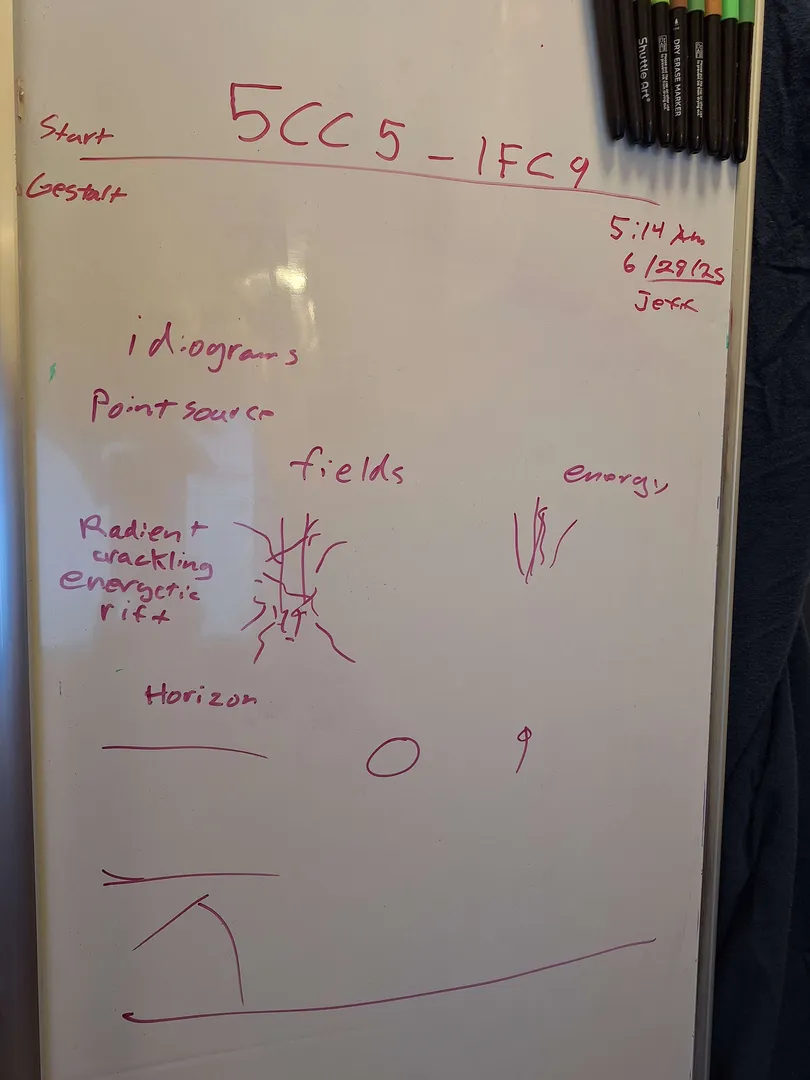 Start
5CC5-1FC9
Gestalt
5:14 Am
6/29/25
Jeff
idiograms
Point source
fields
energy
Radient
crackling
energetic
rift
Horizon
Shuttle Art
DRY ERASE MARKER